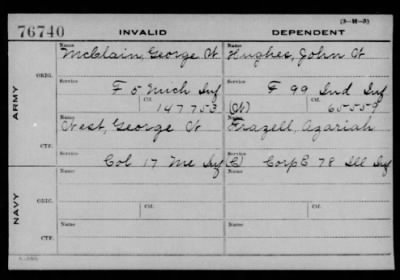 (3-M-3)
76740 INVALID DEPENDENT
Name Name
McClain, George W Hughes, John W
ORIG.
Service Service
F 5 Mich Inf F 99 Ind Inf
Ctf. Ctf.
147753 (W) 65559
ARMY
Name Name
West, George W Frazell, Azariah
CTF.
Service Service
Col 17 Me Inf C) Corp E 78 Ill Inf
Name Name
ORIG.
Ctf. Ctf.
NAVY
Name Name
CTF.